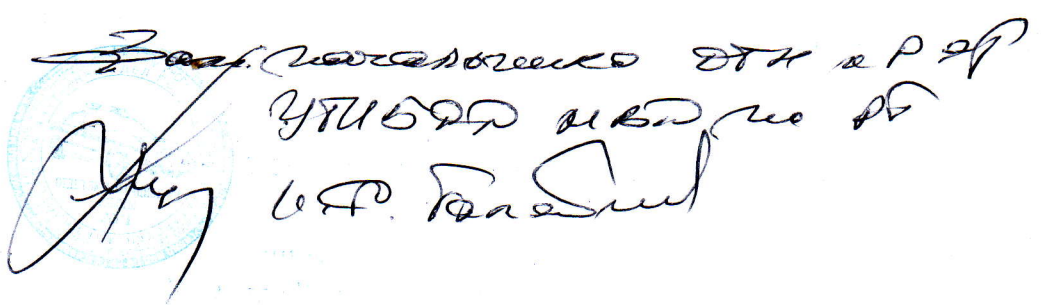 Зам. начальника ОТН и РЭР
УГИБДД МВД по РБ
И.Р.